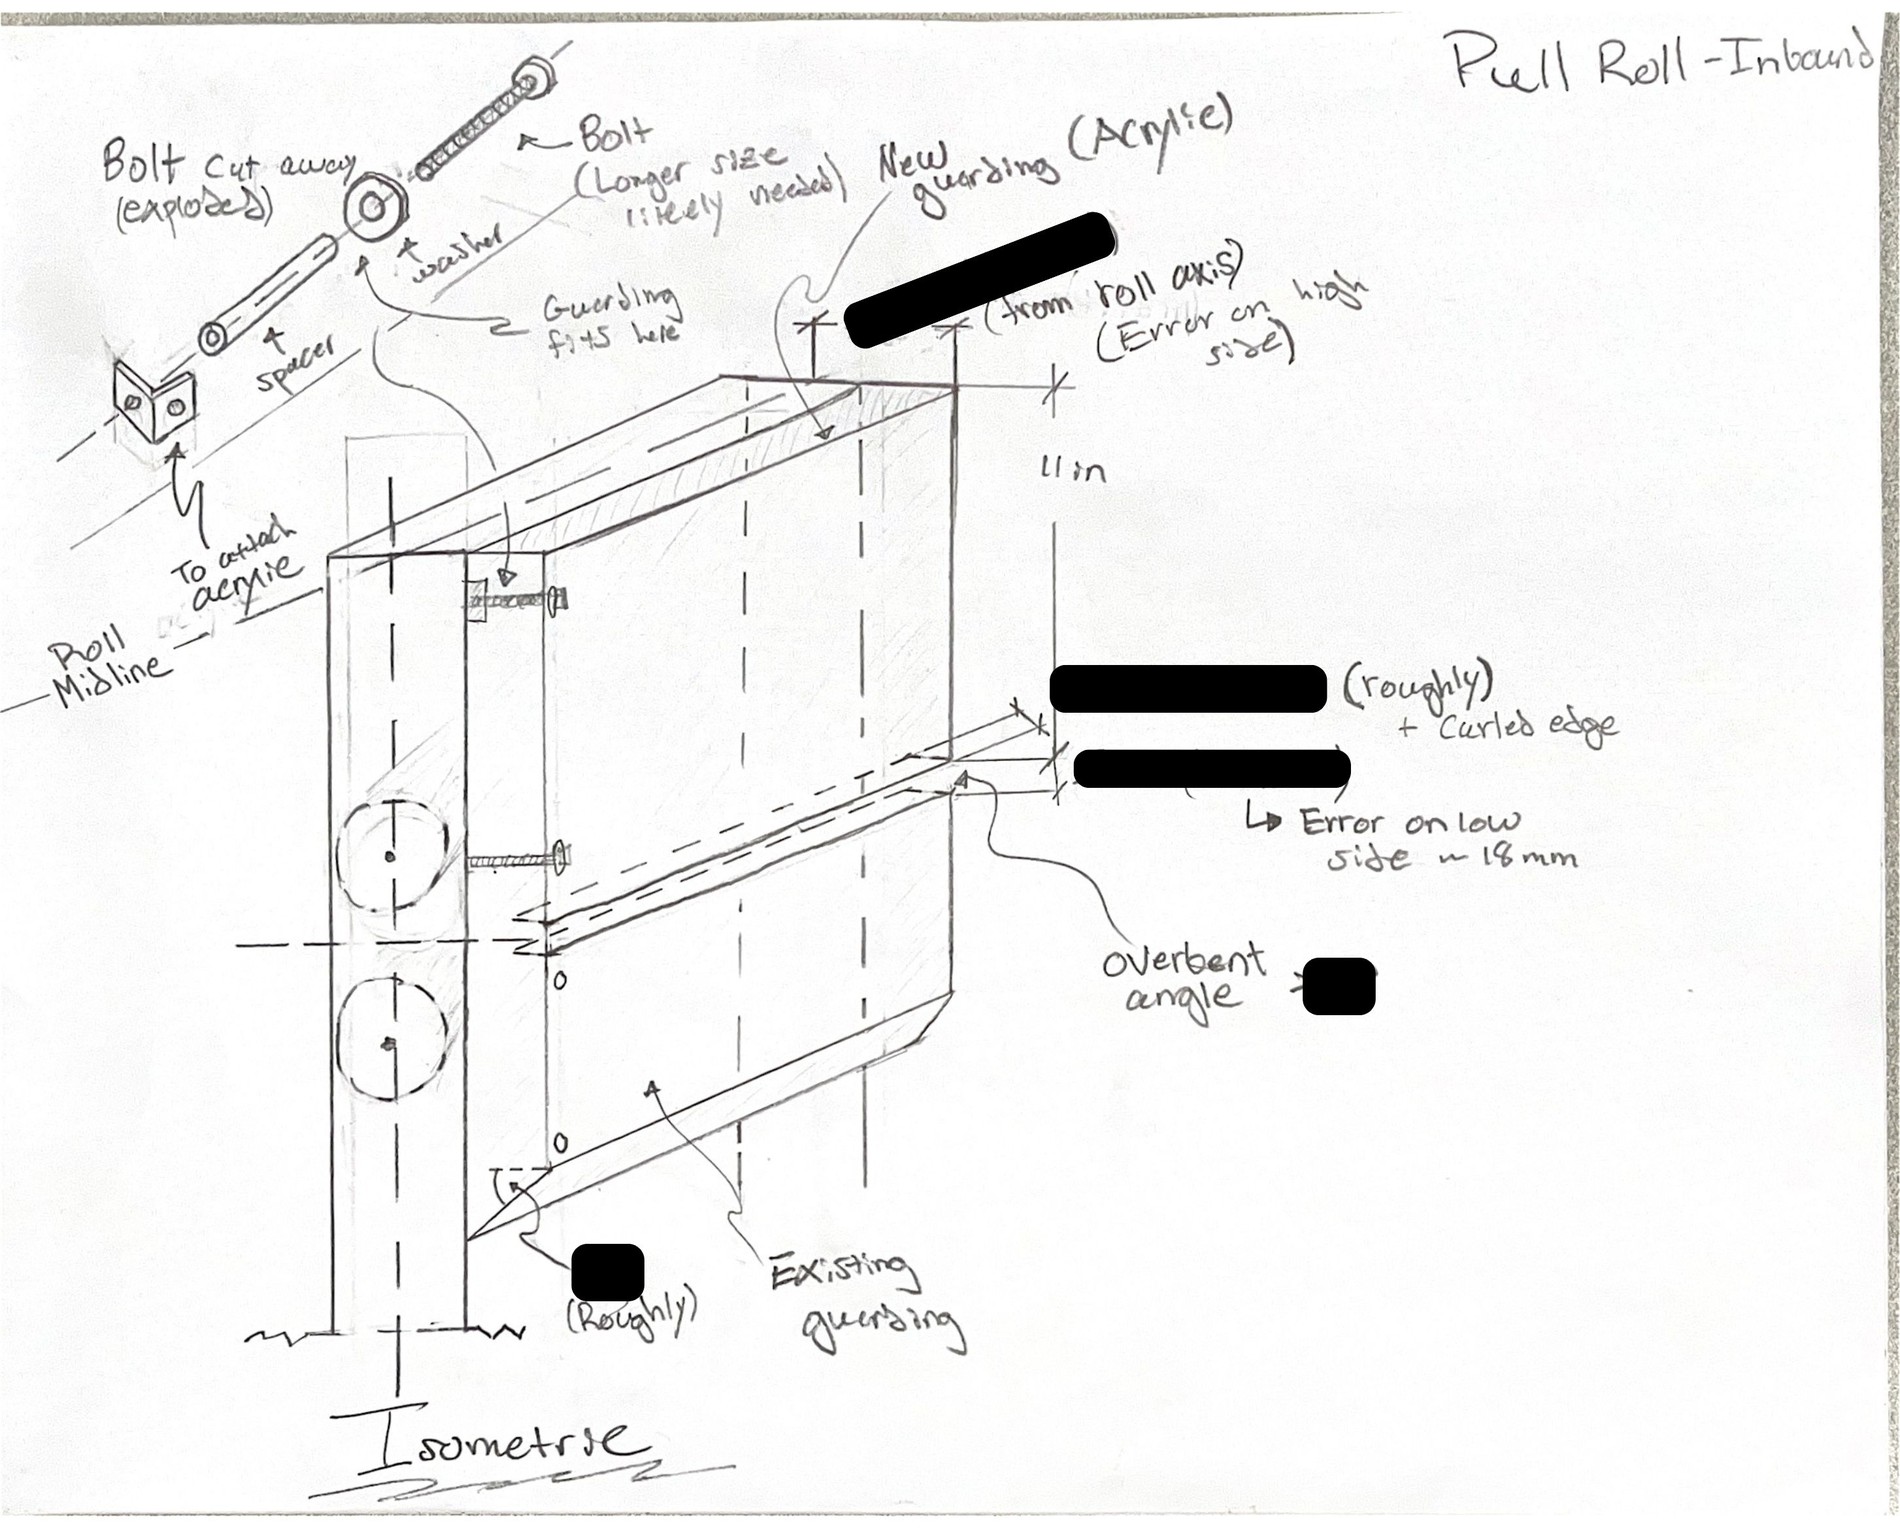 Pull Roll - Inbound
Bolt cut away
(exploded)
Bolt
(Longer size
likely needed)
New
guarding
(Acrylic)
washer
spacer
Guarding
fits here
To attach
acrylic
(from roll axis)
(Error on high
side)
11 in
Roll
Midline
(roughly)
+ Curled edge
↳ Error on low
side ~ 18mm
Overbent
angle
(Roughly)
Existing
guarding
Isometric